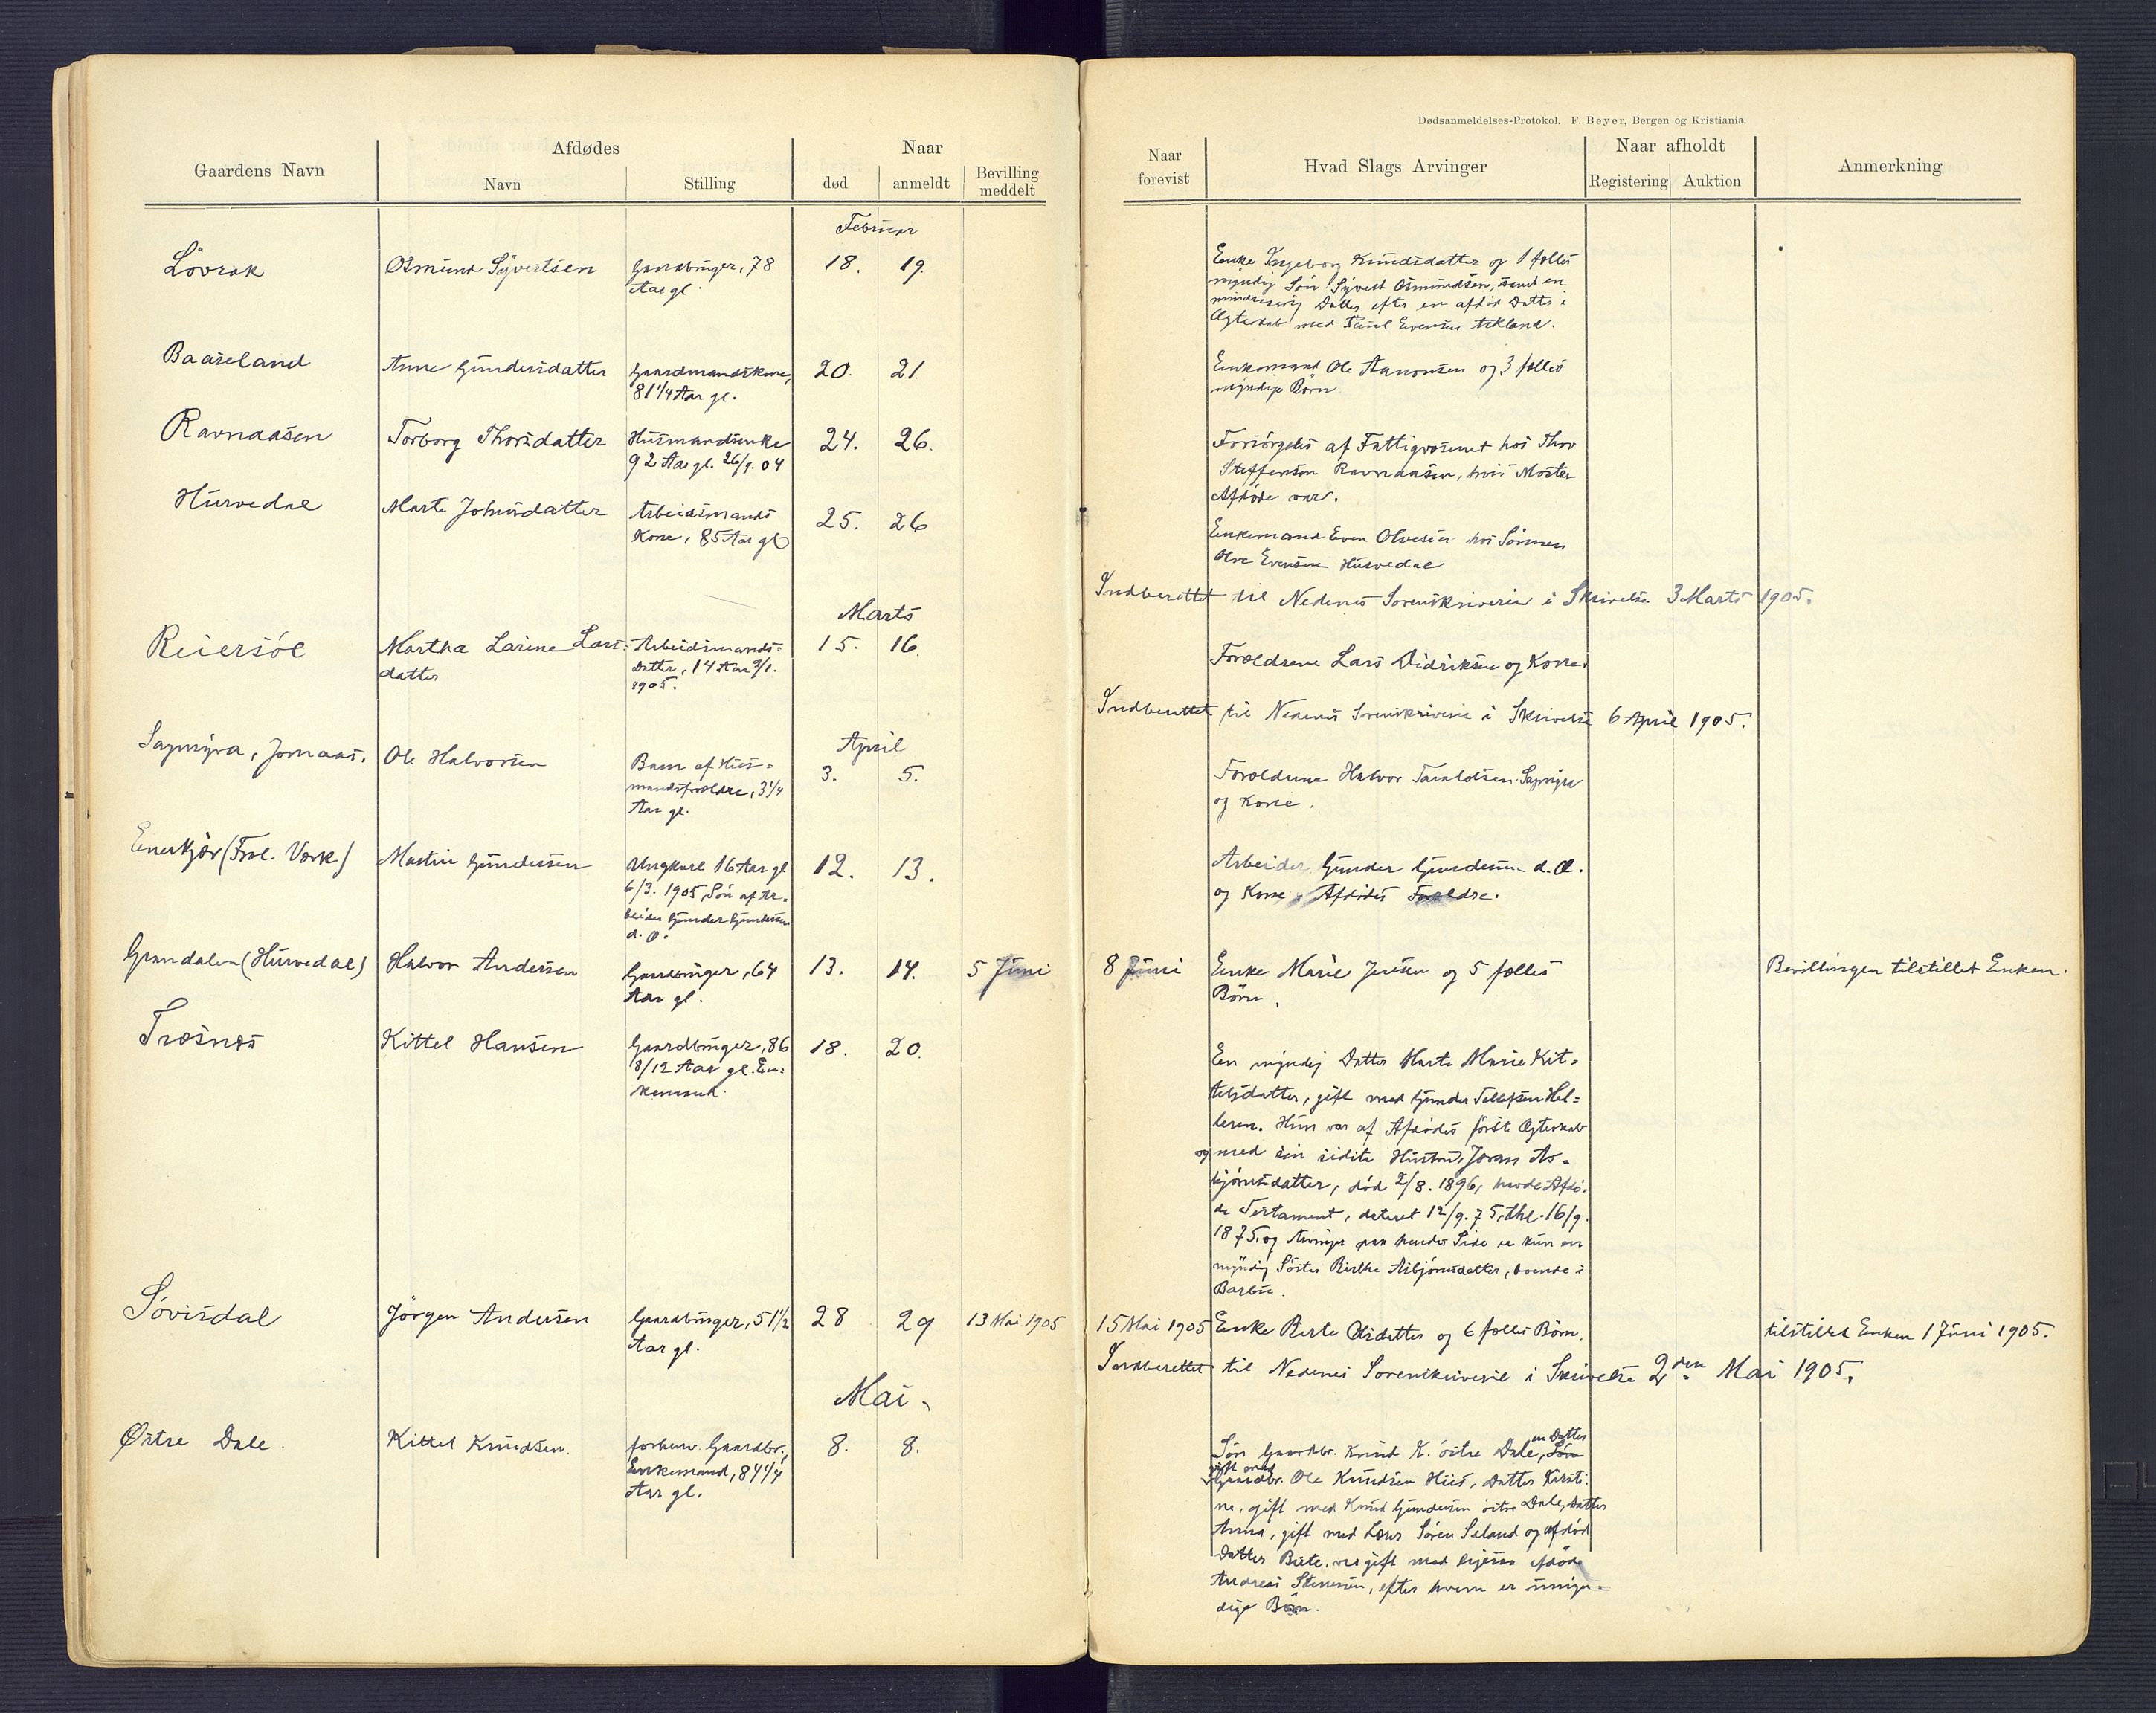 Dødsanmeldelses-Protokol. F. Beyer, Bergen og Kristiania.
Gaardens Navn
Afdødes
Navn
Stilling
Naar
død
anmeldt
Bevilling
meddelt
Naar
forevist
Hvad Slags Arvinger
Naar afholdt
Registering
Auktion
Anmerkning
Februar
Lövrak
Osmund Syvertsen
Gaardbruger, 78
Aar gl.
18.
19.
Enke Ingeborg Knudsdatter og 1 fælles
myndig Søn Syvert Osmundsen, samt en
mindreaarig Datter efter en afdød Datter i
Ægteskab med Evensen
Baaseland
Anne Gundersdatter
Gaardmandskone,
81 1/4 Aar gl.
20.
21.
Enkemand Ole Aanonsen og 3 fælles
myndige Børn
Ravnaasen
Torborg Thorsdatter
Husmandsenke
92 Aar gl. 26/9. 04
24.
26.
Forsørgedes af Fattigvæsenet hos Thor
Steffensen Ravnaasen, hvis Moster
Afdøde var.
Hurvedal
Marte Johnsdatter
Arbeidsmands
Kone, 85 Aar gl
25.
26
Enkemand Even Olvesen hos Sønnen
Olve Evensen Hurvedal
Indberettet til Nedenes Sorenskriverie i Skrivelse 3 Marts 1905.
Marts
Reiersöl
Martha Larine Lars=
datter
Arbeidsmands=
Datter, 14 Aar 9/1.
1905.
15.
16.
Forældrene Lars Didriksen og Kone.
Indberettet til Nedenes Sorenskriverie i Skrivelse 6 April 1905.
April
Sagmyra, Jomaas.
Ole Halvorsen
Barn af Hus=
mandsforældre, 3 1/4
Aar gl.
3.
5.
Forældrene Halvor Taraldsen Sagmyra
og Kone.
Enerkjær (Frol. Værk)
Martin Gundersen
Ungkarl 16 Aar gl
6/3. 1905, Søn af Ar=
beider Gunder Gundersen
d. Æ.
12.
13.
Arbeider Gunder Gundersen d. Æ.
og Kone, Afdødes Forældre.
Grundalen (Hurvedal)
Halvor Andersen
Gaardbruger, 64
Aar gl.
13.
14.
5 Juni
8 Juni
Enke Marie Jensen og 5 fælles
Börn.
Bevillingen tilstillet Enken.
Træsnes
Kittel Hansen
Gaardbruger, 86
8/12 Aar gl. En=
kemand.
18.
20.
En myndig Datter Marte Marie Kit=
telsdatter, gift med Gunder Tellefsen Hel=
leren. Hun var af Afdødes første Ægteskab
og med sin sidste Hustru, Joran As=
bjørnsdatter, død 2/8. 1896, havde Afdø=
de Testament, dateret 12/9. 75, thl. 16/9.
1875, og Arvinger paa hendes Side er kun en
myndig Söster Birthe Asbjørnsdatter, boende i
Barbu.
Sövisdal
Jörgen Andersen
Gaardbruger, 51 1/2
Aar gl.
28
29
13 Mai 1905
15 Mai 1905
Enke Berte Olsdatter og 6 fælles Børn.
tilstillet Enken 1 Juni 1905.
Indberettet til Nedenes Sorenskriverie i Skrivelse 2den Mai 1905.
Mai.
Östre Dale.
Kittel Knudsen.
forhenv. Gaardbr.,
Enkemand, 84 1/4
Aar gl.
8.
8.
Søn Gaardbr. Knud K. östre Dale, en Datter Søn
gift med
Gaardbr. Ole Knudsen Hus, Datter Kirsti=
ne, gift med Knud Gundersen östre Dale, Datter
Anna, gift med Lærer Søren Seland og afdød
Datter Berte, var gift med ligesaa afdøde
Andreas Stensen, efter hvem er umyn=
dige Børn.